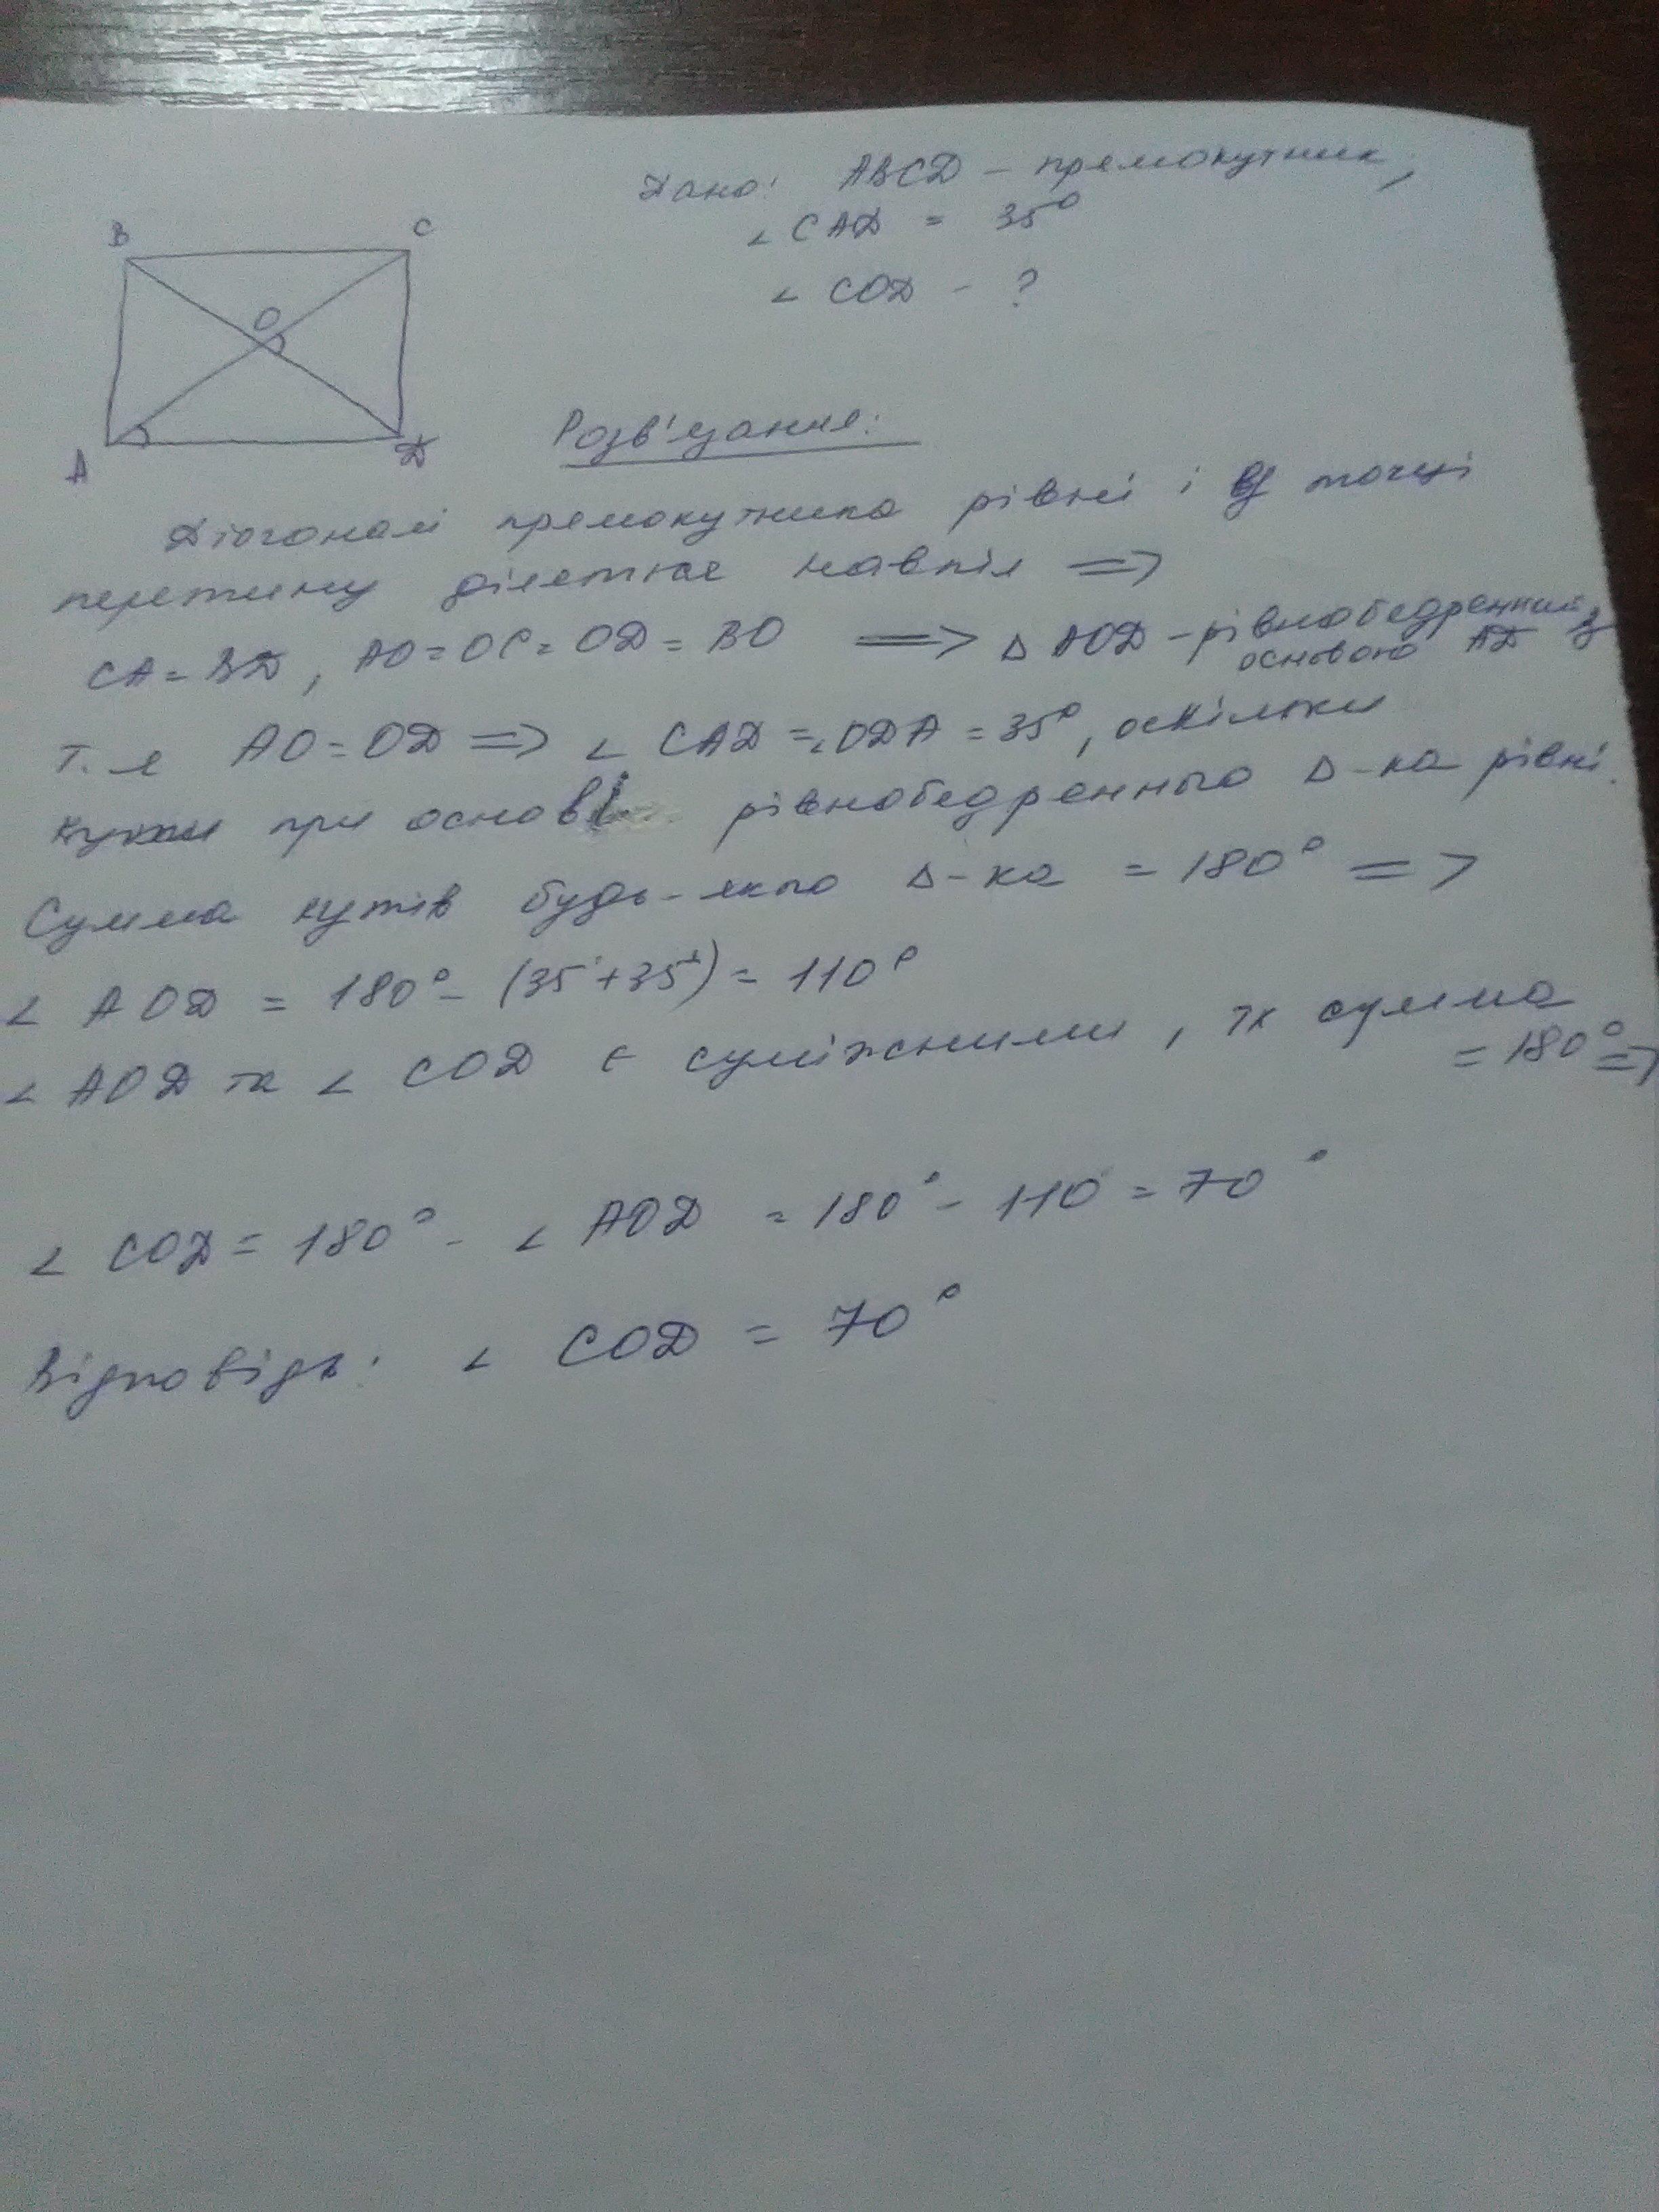 Дано: ABCD – прямокутник,
∠ CAD = 35°
∠ COD - ?
B C
O
A D
Розв'язання:
Діагоналі прямокутника рівні і в точці
перетину діляться навпіл =>
CA = BD, AO = OC = OD = BO => Δ AOD – рівнобедренний з
основою AD
AO = OD => ∠ CAD = ∠ODA = 35°, оскільки
кути при основі рівнобедренного Δ-ка рівні.
Сумма кутів будь-якого Δ-ка = 180° =>
∠ AOD = 180° - (35°+35°) = 110°
∠ AOD та ∠ COD є суміжними, тк сумма
= 180° =>
∠ COD = 180° - ∠ AOD = 180° - 110° = 70°
Відповідь: ∠ COD = 70°